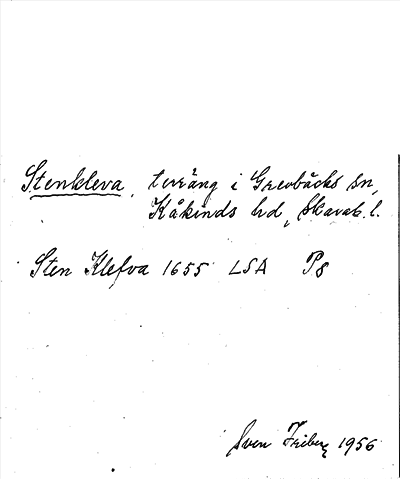 Stenkleva, terräng i Grevbäcks sn,
Kåkinds hd, Skarab. l.
Sten Klefva 1655 LSA P8
Sven Friberg 1956